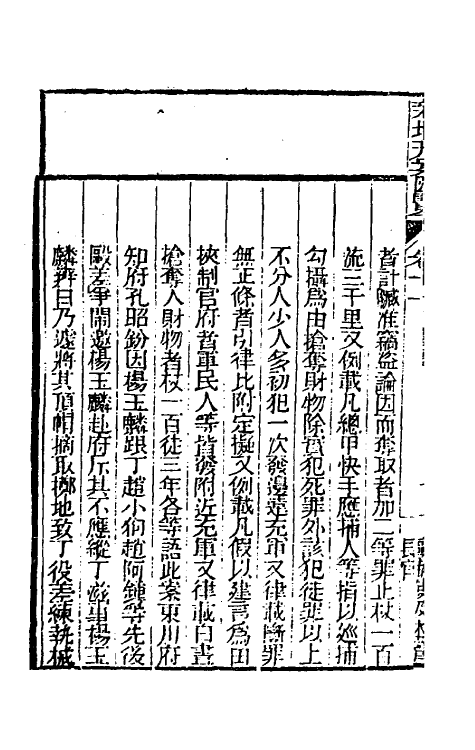 者計贓准竊盜論因而奪取者加二等罪止杖一百
流三千里又例載凡總甲快手應捕人等指以巡捕
勾攝爲由搶奪財物除實犯死罪外該犯徒罪以上
不分人少人多初犯一次發邊遠充軍又律載斷罪
無正條者引律比附定擬又例載凡假以建言爲由
挾制官府者軍民人等皆發附近充軍又律載白晝
搶奪人財物者杖一百徒三年各等語此案東川府
知府孔昭鈖因楊玉麟跟丁趙小狗趙阿鍾等先後
毆差爭鬧邀楊玉麟赴府斥其不應縱丁滋事楊玉
麟辨曰乃遽將其頂帽摘取擲地致丁役差練執械